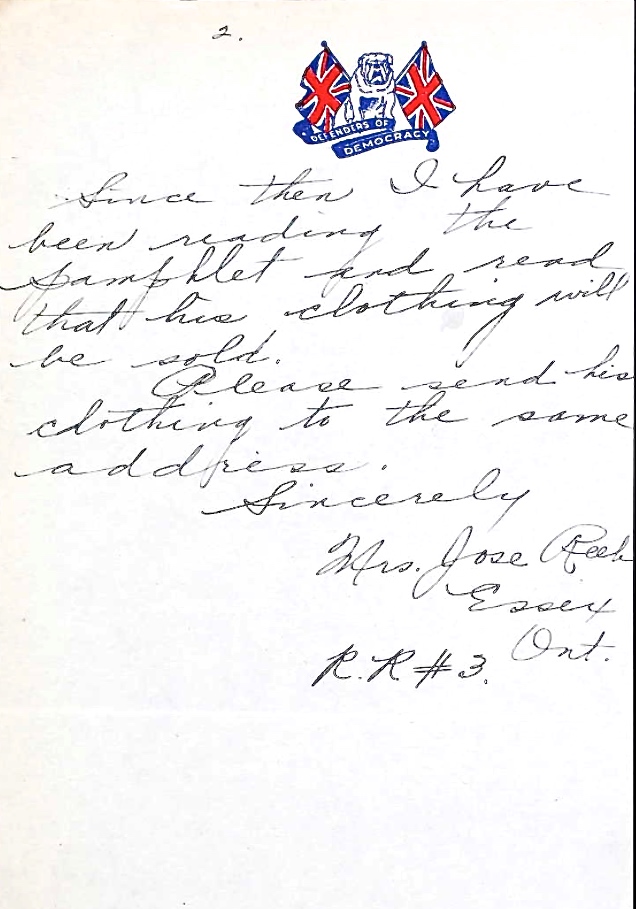 2.
DEFENDERS OF
DEMOCRACY
Since then I have
been reading the
pamphlet and read
that his clothing will
be sold.
Please send his
clothing to the same
address.
Sincerely
Mrs. Jose Reeb
Essex
Ont.
R.R #3.